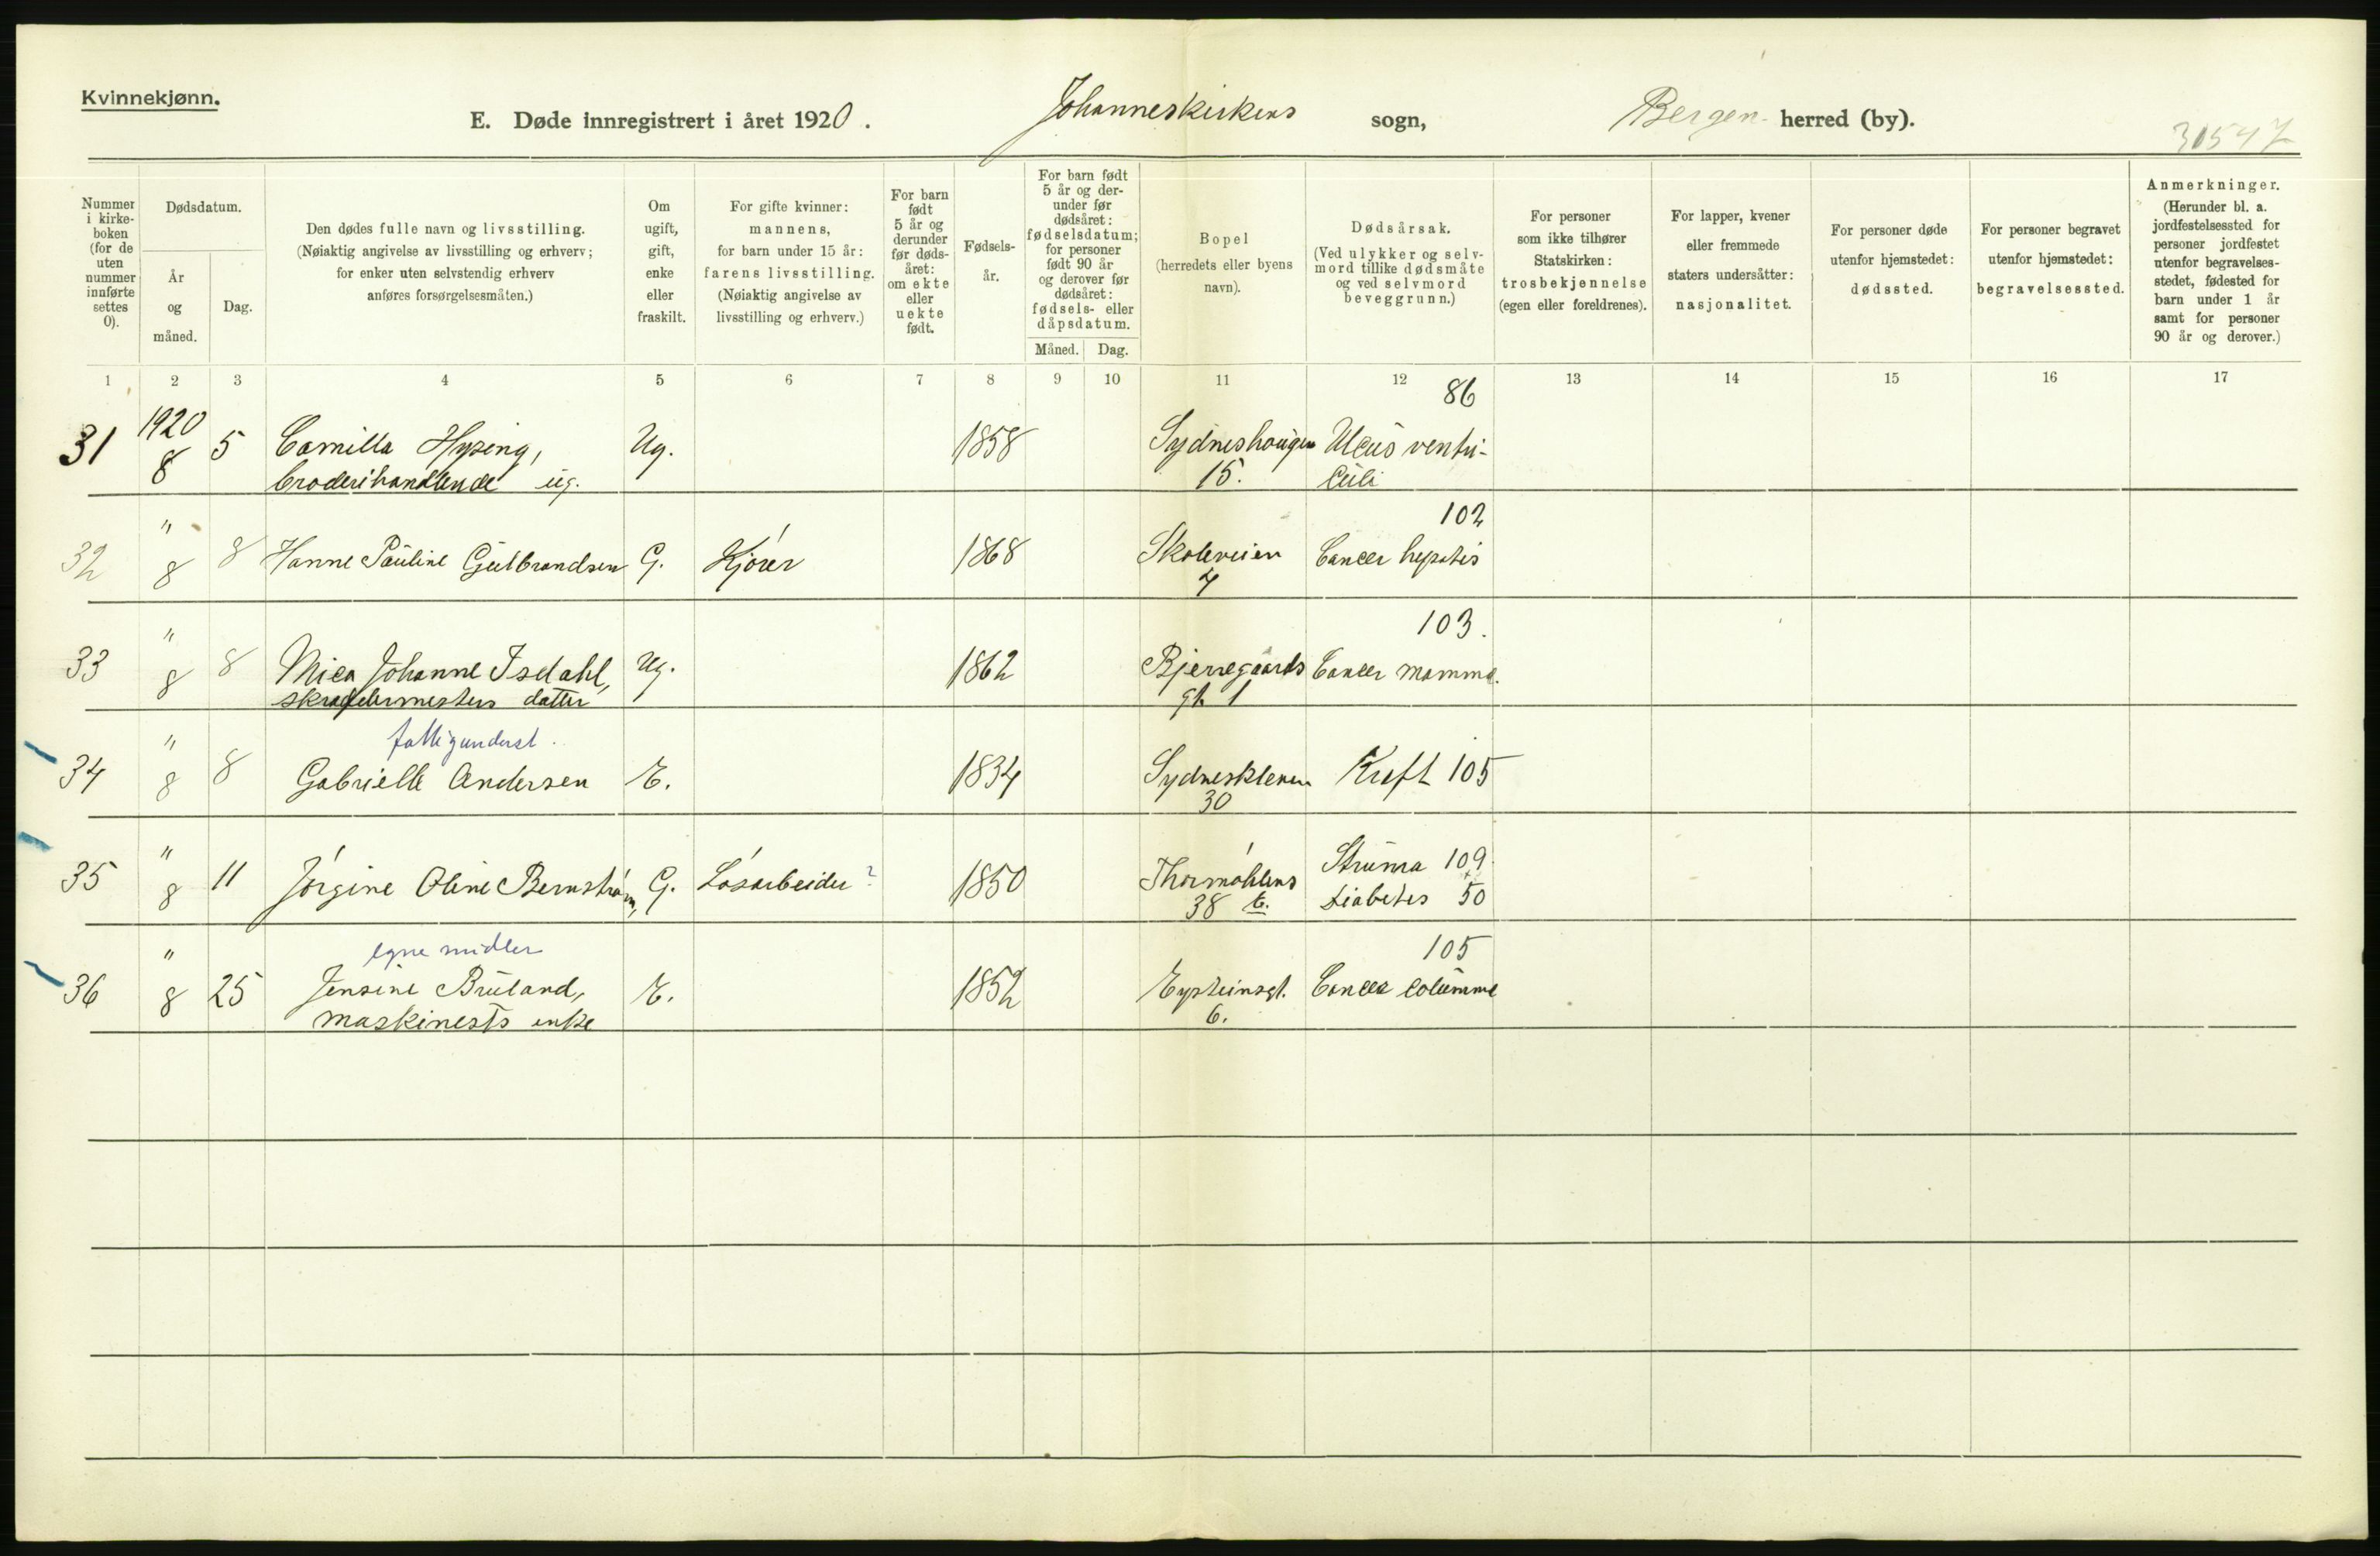 Kvinnekjønn.
E. Døde innregistrert i året 1920. Johanneskirkens sogn, Bergen herred (by).
31547
Nummer i kirke- boken (for de uten nummer innførte settes 0).
Dødsdatum.
År og måned.
Dag.
Den dødes fulle navn og livsstilling.
(Nøiaktig angivelse av livsstilling og erhverv;
for enker uten selvstendig erhverv
anføres forsørgelsesmåten.)
Om ugift, gift, enke eller fraskilt.
For gifte kvinner:
mannens,
for barn under 15 år:
farens livsstilling.
(Nøiaktig angivelse av
livsstilling og erhverv.)
For barn født 5 år og derunder før døds- året: om ekte eller uekte født.
Fødsels- år.
For barn født 5 år og der- under før dødsåret: fødselsdatum; for personer født 90 år og derover før dødsåret: fødsels- eller dåpsdatum.
Måned. Dag.
Bopel
(herredets eller byens
navn).
Dødsårsak.
(Ved ulykker og selv-
mord tillike dødsmåte
og ved selvmord
beveggrunn.)
For personer
som ikke tilhører
Statskirken:
trosbekjennelse
(egen eller foreldrenes).
For lapper, kvener
eller fremmede
staters undersåtter:
nasjonalitet.
For personer døde
utenfor hjemstedet:
dødssted.
For personer begravet
utenfor hjemstedet:
begravelsessted.
Anmerkninger.
(Herunder bl. a.
jordfestelsessted for
personer jordfestet
utenfor begravelses-
stedet, fødested for
barn under 1 år
samt for personer
90 år og derover.)
1 2 3 4 5 6 7 8 9 10 11 12 13 14 15 16 17
86
31 1920 8 5 Camilla Hysing, Ug. 1858 Sydneshaugen Ulcus ventri-
broderihandlende ug. 15. culi
102
32 " 8 8 Hanne Pauline Gulbrandsen G. Kjører 1868 Skoleveien Cancer hepatis
7
103.
33 " 8 8 Mica Johanne Isdahl, Ug. 1862 Bjerregaards Cancer mamma.
skreddermesters datter gt. 1
fattigunderst.
34 " 8 8 Gabrielle Andersen E. 1834 Sydneskleven Kreft 105
30
35 " 8 11 Jørgine Oline Bernstrøm, G. Løsarbeider ? 1850 Thormøhlens Struma 109
38 b. Diabetes 50
egne midler
105
36 " 8 25 Jensine Bruland, E. 1852 Eysteinsgt. Cancer columna
maskinists enke 6.